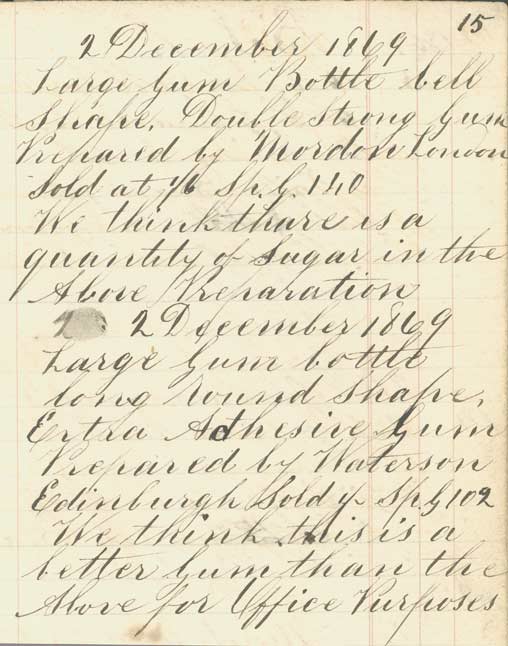 15
2 December 1869
Large Gum Bottle bell
Shape. Double Strong Gum
Prepared by Mordon London
Sold at 1/6 Sp.G. 140
We think thare is a
quantity of Sugar in the
Above Preparation
2 December 1869
Large Gum bottle
long round Shape,
Extra Adhesive Gum
Prepared by Waterson
Edinburgh Sold Sp.G 102
We think this is a
better Gum than the
Above for Office Purposes